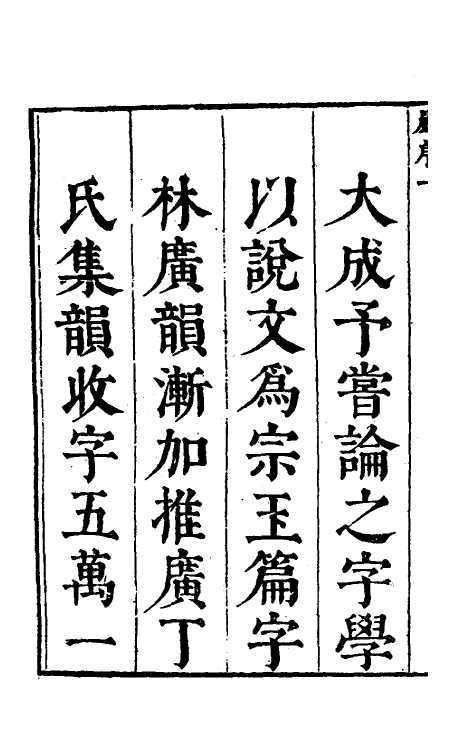 大成予嘗論之字學
以說文爲宗玉篇字
林廣韻漸加推廣丁
氏集韻收字五萬一